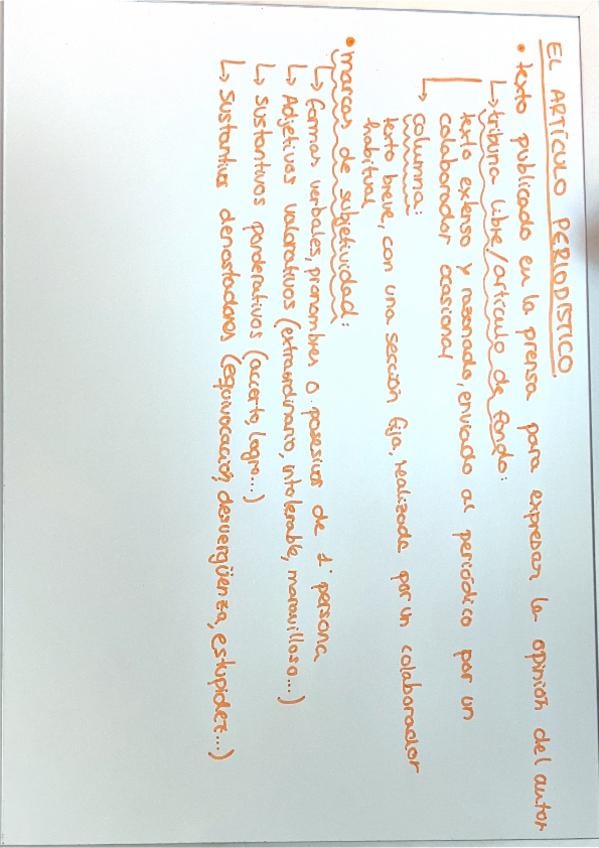 EL ARTÍCULO PERIODÍSTICO.
• texto publicado en la prensa para expresar la opinión del autor
↳ tribuna libre/artículo de fondo:
texto extenso y razonado, enviado al periódico por un
colaborador ocasional
↳ columna:
texto breve, con una sección fija, realizada por un colaborador
habitual
• marcas de subjetividad:
↳ formas verbales, pronombres o posesivos de 1ª persona
↳ Adjetivos valorativos (extraordinario, intolerable, maravilloso...)
↳ sustantivos ponderativos (acierto, logro...)
↳ Sustantivos denostadores (equivocación, desvergüenza, estupidez...)